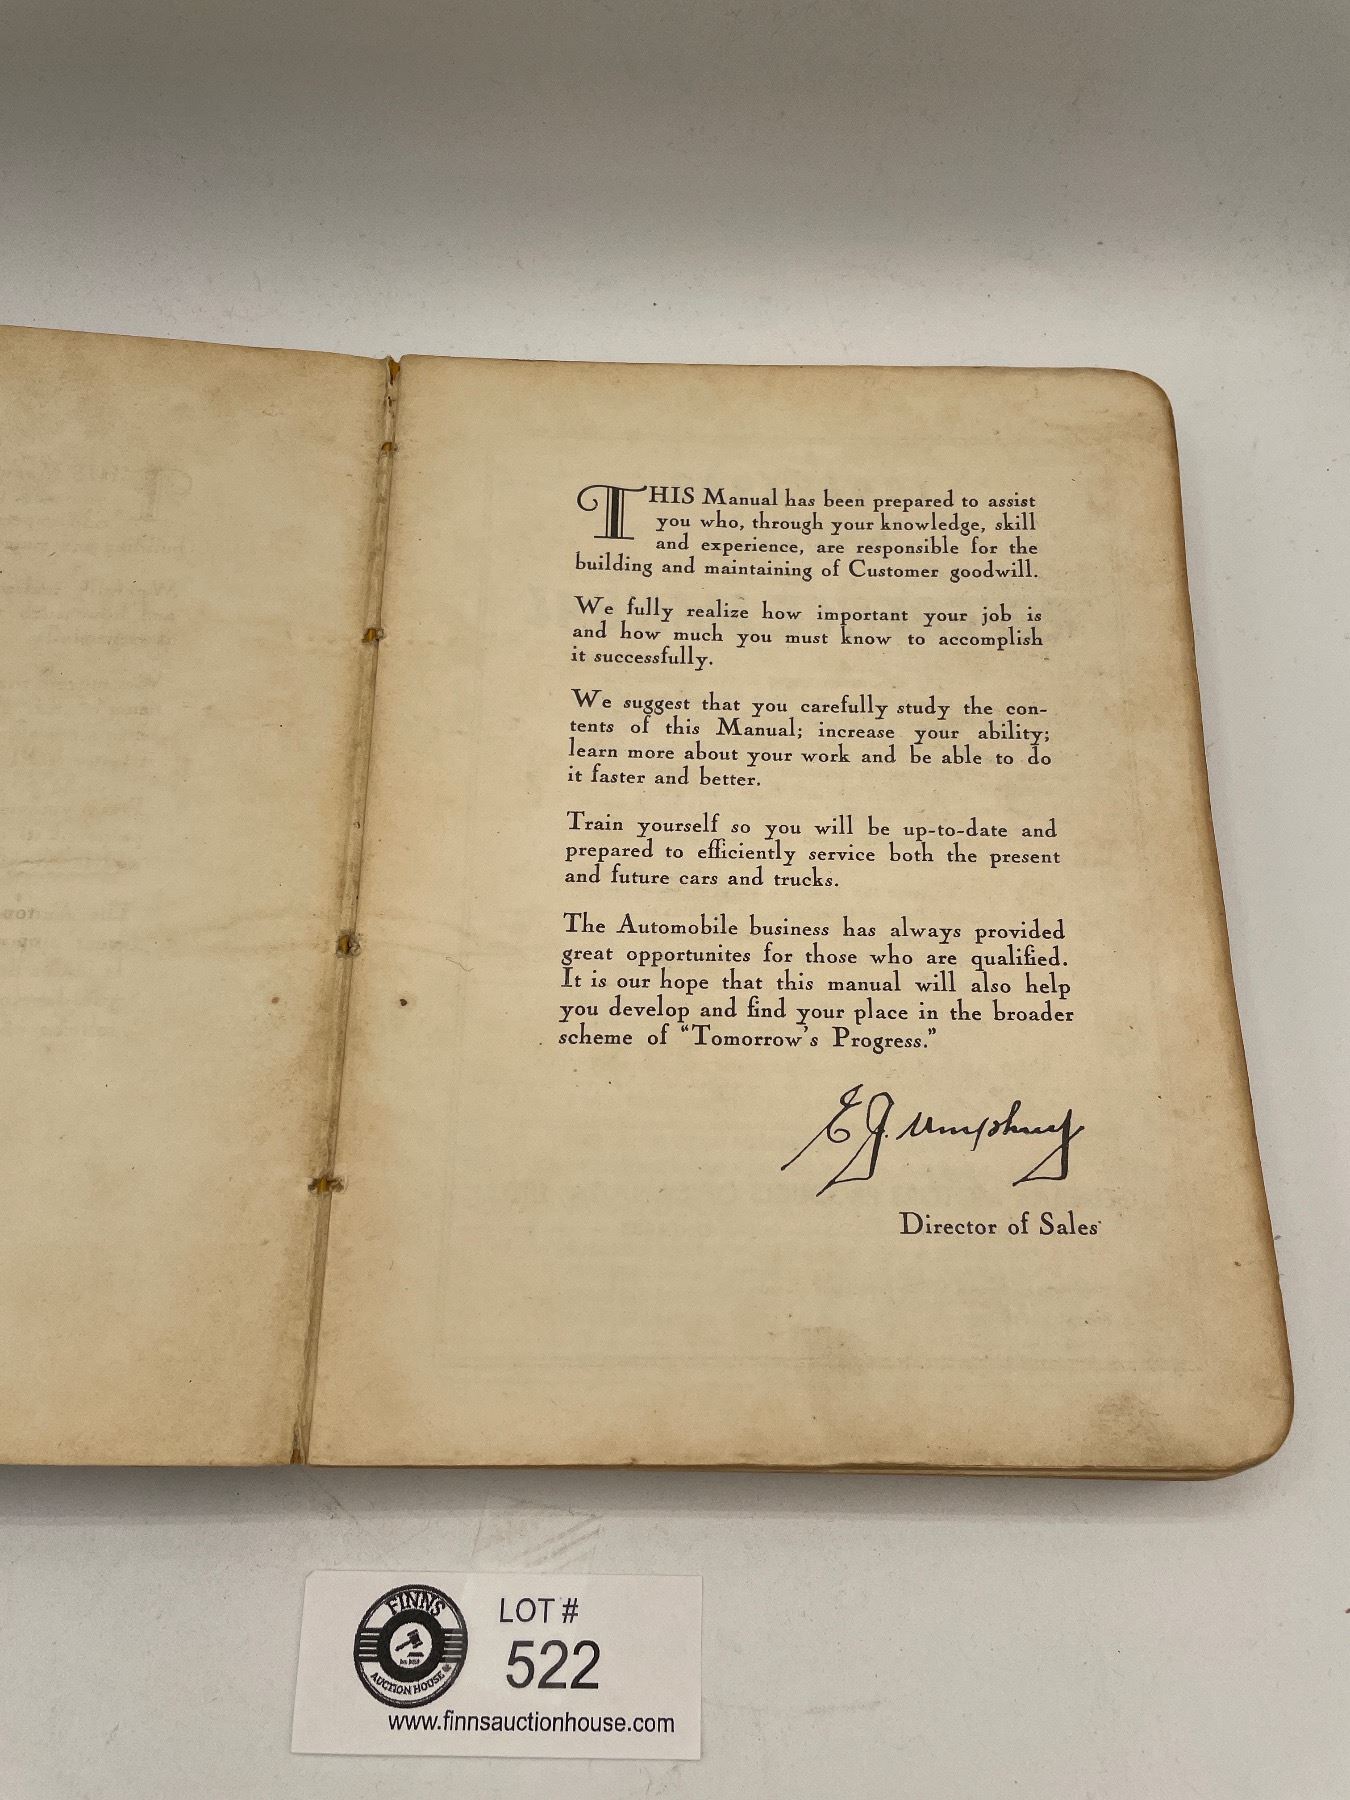 THIS Manual has been prepared to assist
you who, through your knowledge, skill
and experience, are responsible for the
building and maintaining of Customer goodwill.
We fully realize how important your job is
and how much you must know to accomplish
it successfully.
We suggest that you carefully study the con-
tents of this Manual; increase your ability;
learn more about your work and be able to do
it faster and better.
Train yourself so you will be up-to-date and
prepared to efficiently service both the present
and future cars and trucks.
The Automobile business has always provided
great opportunites for those who are qualified.
It is our hope that this manual will also help
you develop and find your place in the broader
scheme of "Tomorrow's Progress."
E J. Umphrey
Director of Sales
FINNS
AUCTION HOUSE
LOT #
522
www.finnsauctionhouse.com